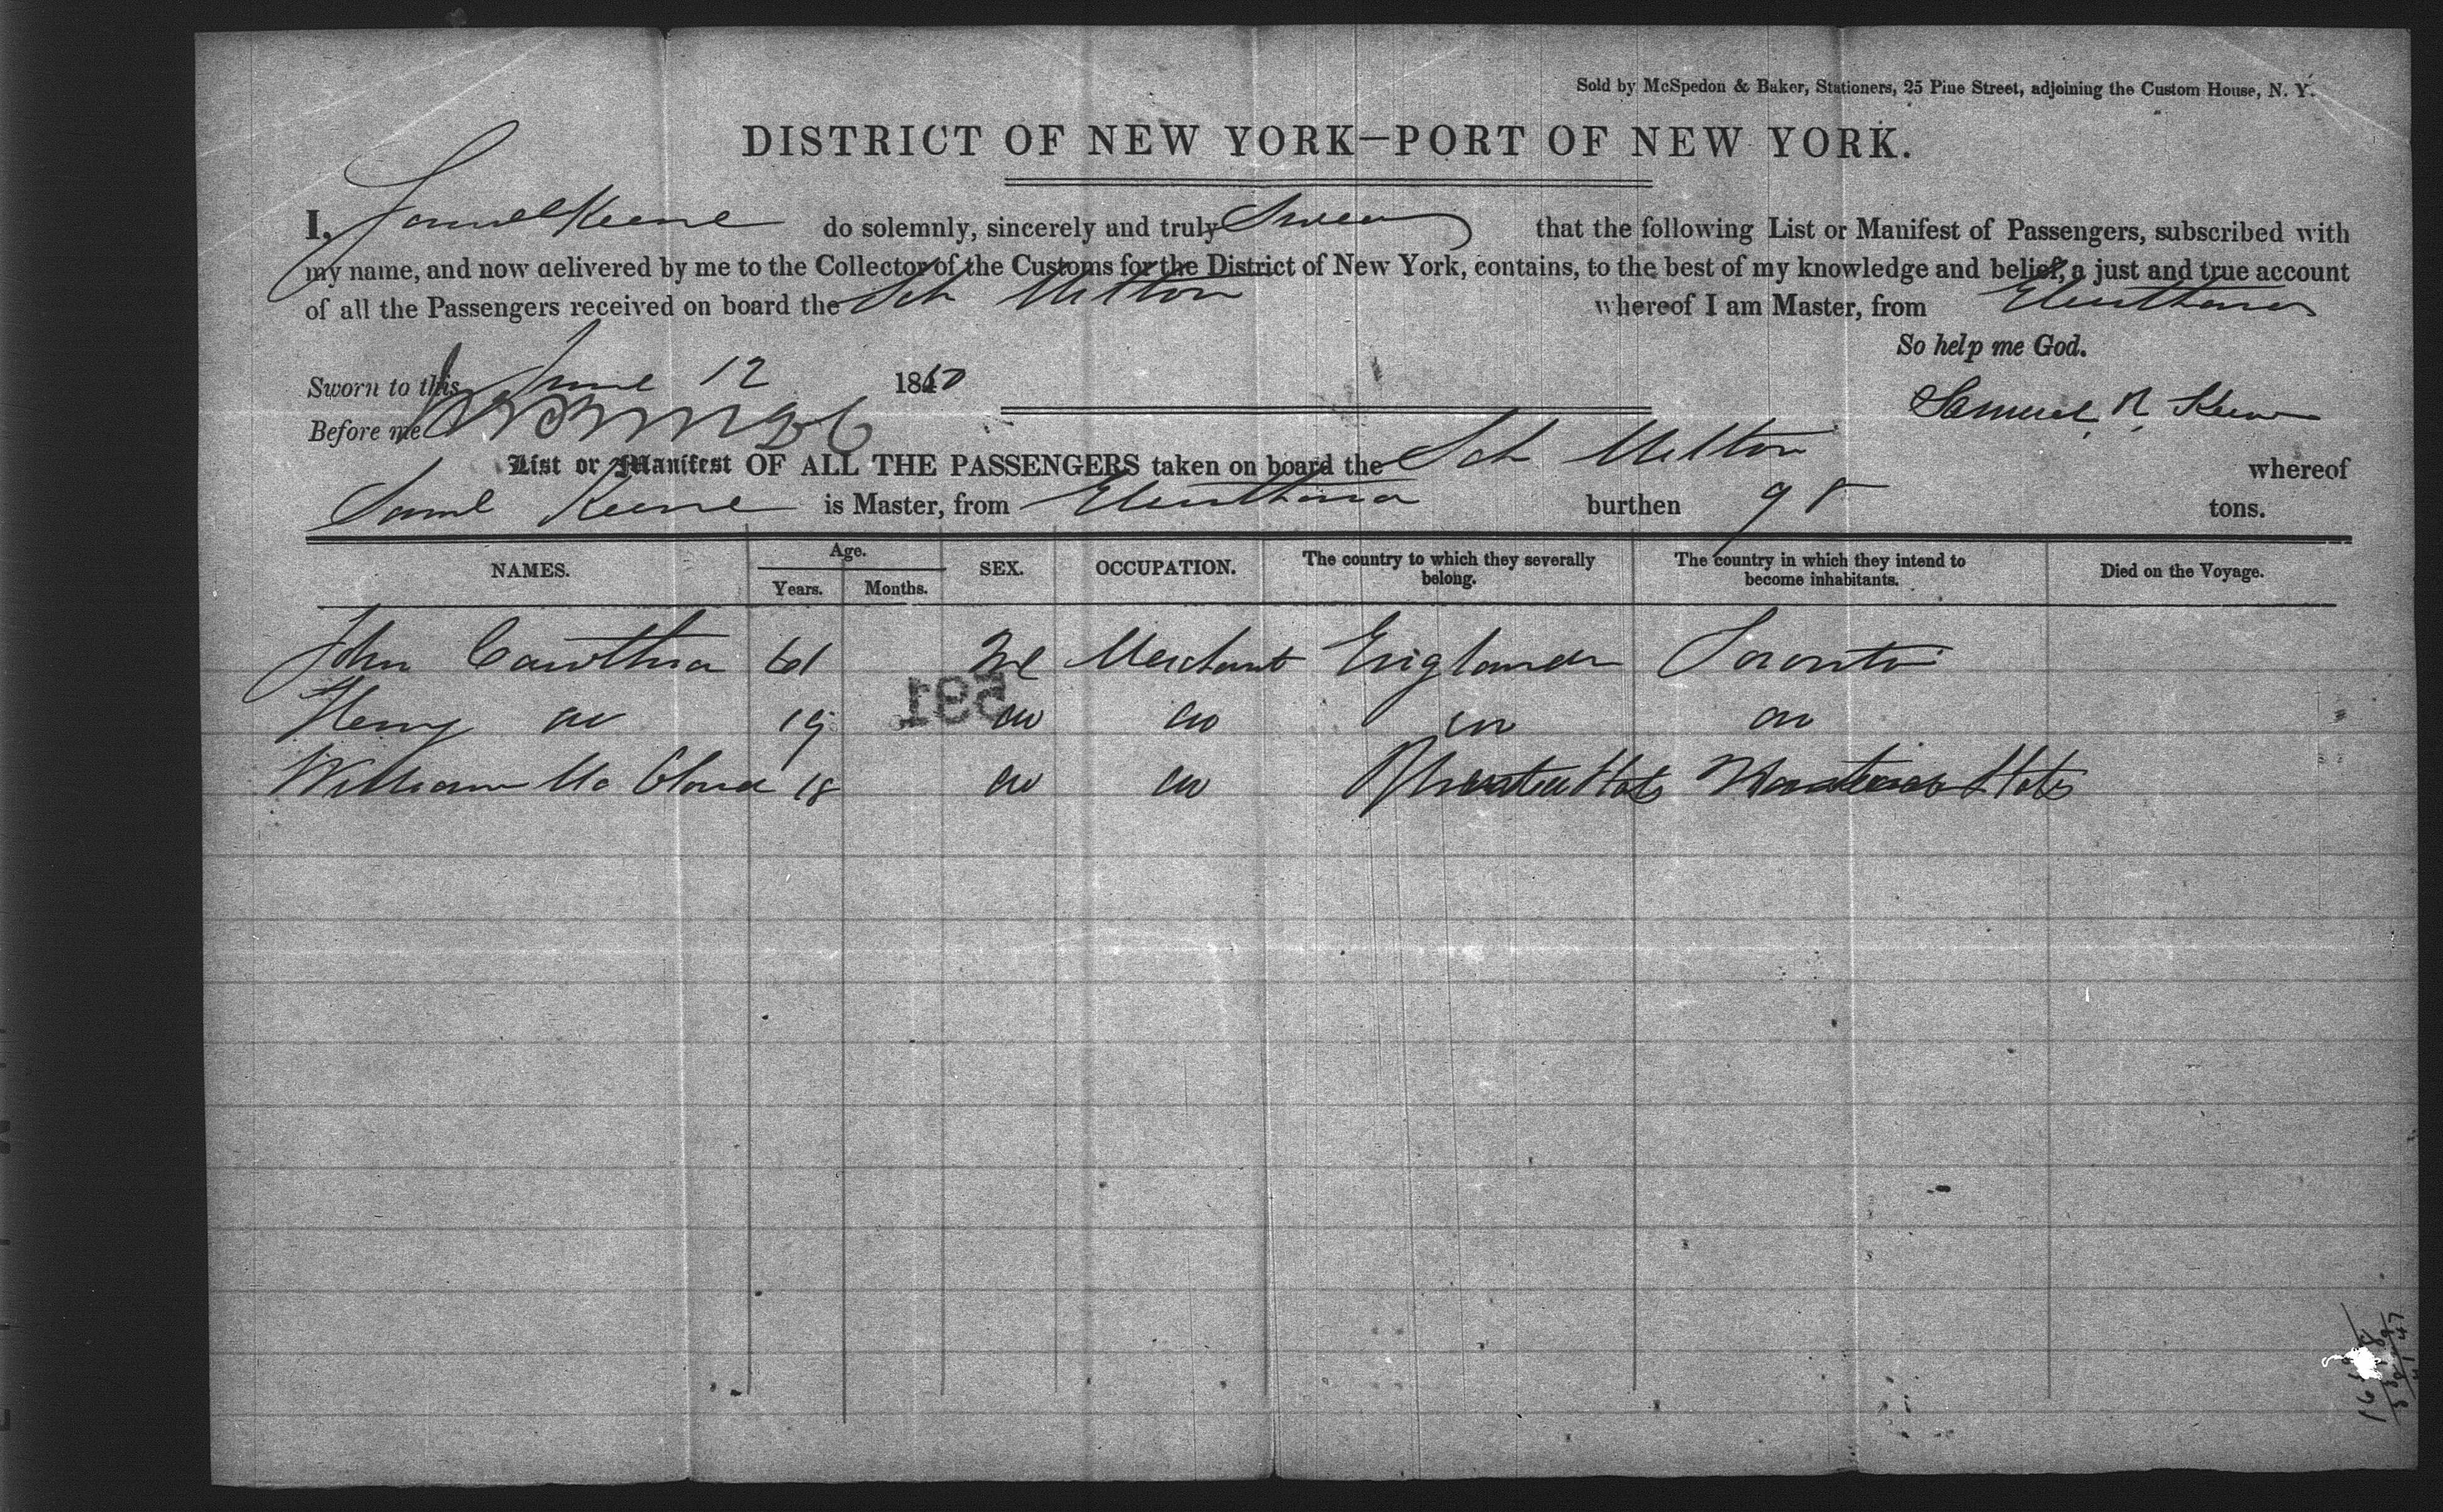 Sold by McSpedon & Baker, Stationers, 25 Pine Street, adjoining the Custom House, N. Y.
DISTRICT OF NEW YORK—PORT OF NEW YORK.
I, Samuel Keene do solemnly, sincerely and truly Swear that the following List or Manifest of Passengers, subscribed with
my name, and now delivered by me to the Collector of the Customs for the District of New York, contains, to the best of my knowledge and belief, a just and true account
of all the Passengers received on board the Sch Milton whereof I am Master, from Eleuthera
So help me God.
Sworn to this June 12 1850
Samuel R Keene
Before me
List or Manifest OF ALL THE PASSENGERS taken on board the Sch Milton whereof
Saml Keene is Master, from Eleuthera burthen 98 tons.
NAMES. Age. Years. Months. SEX. OCCUPATION. The country to which they severally belong. The country in which they intend to become inhabitants. Died on the Voyage.
John Cawthra 61 Ml Merchant England Toronto
591
Henry do 19 do do do do
William Mc Cloud 18 do do States States